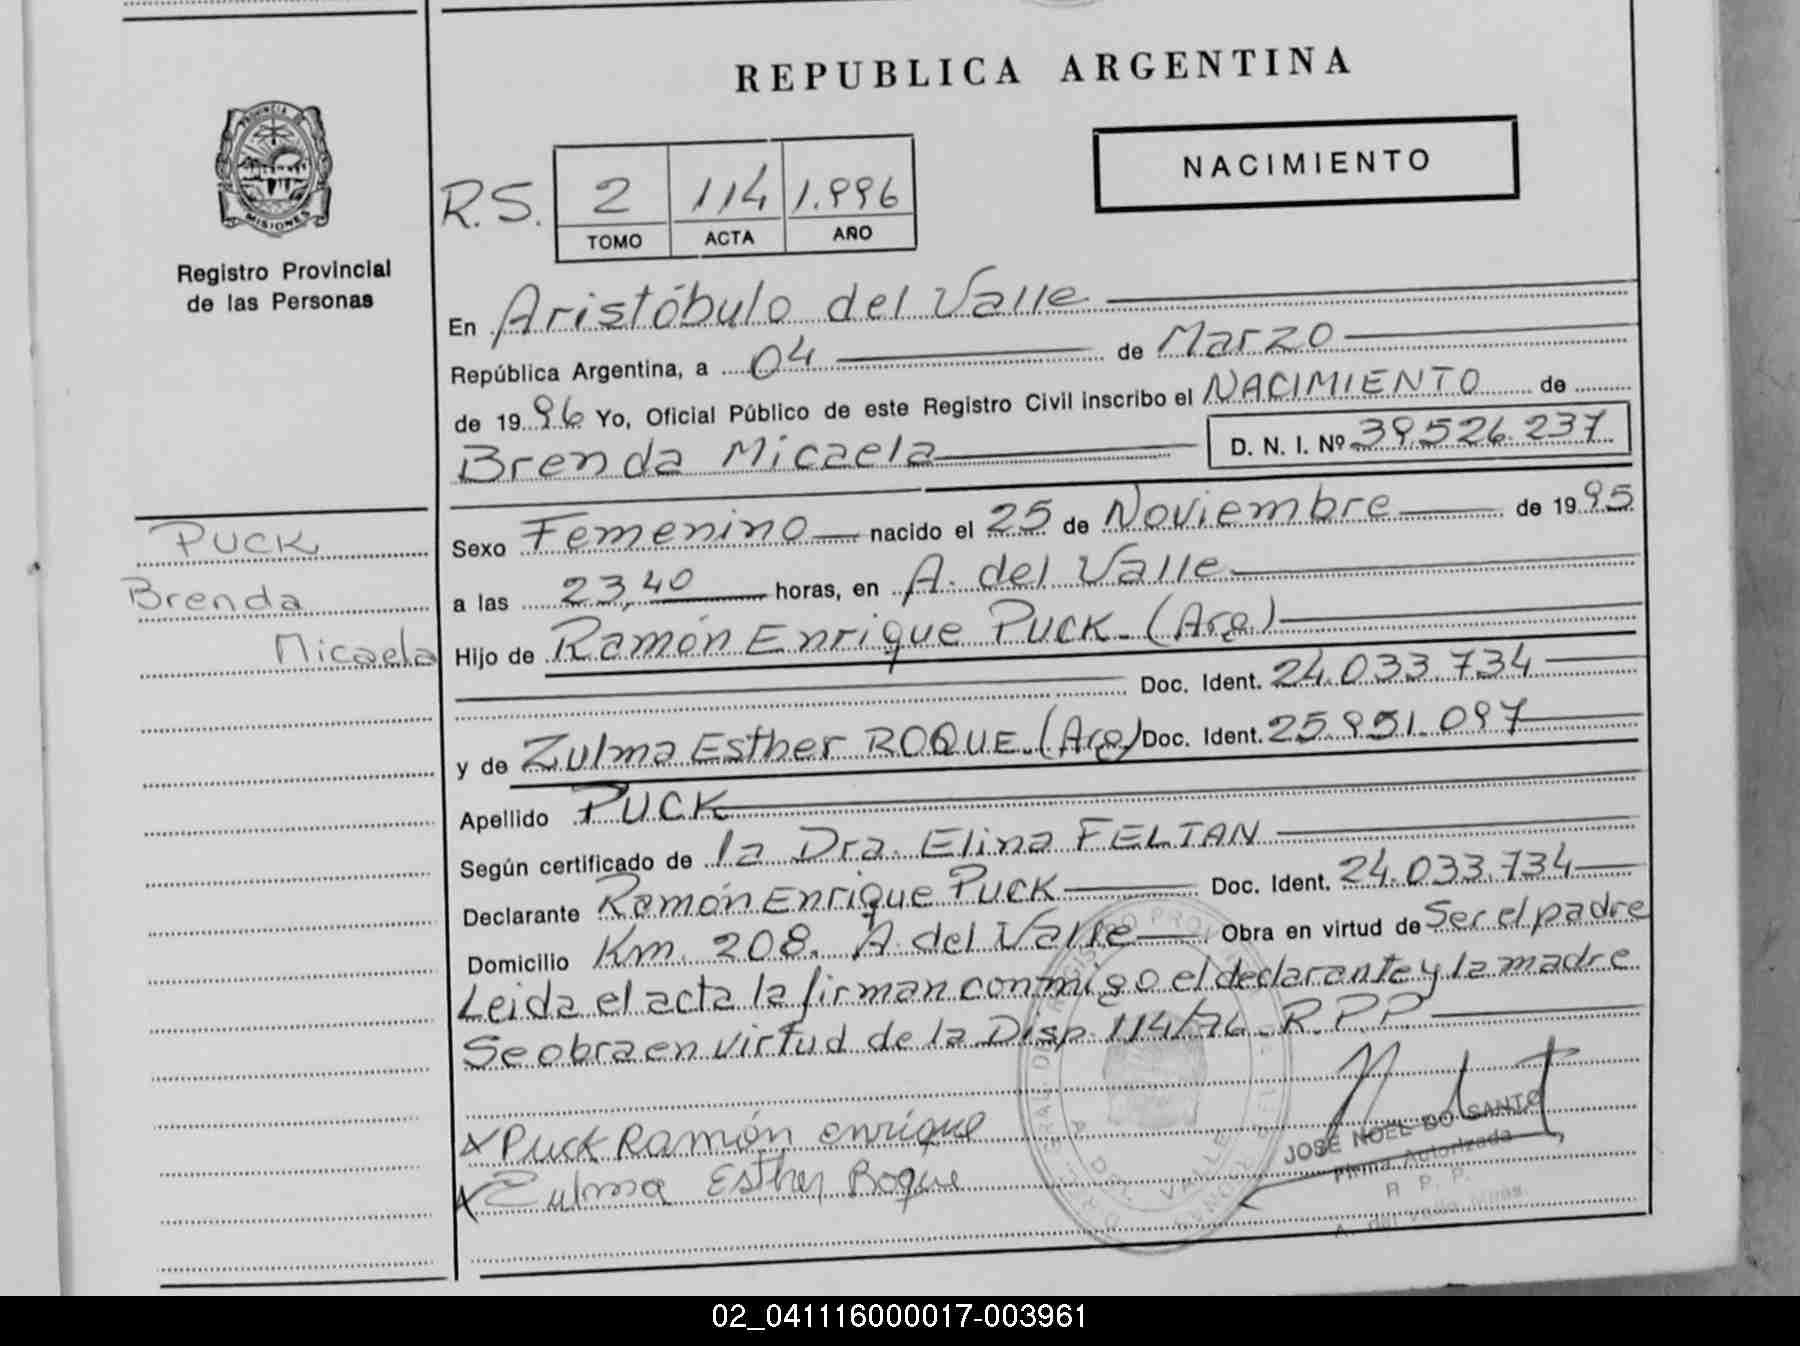 REPUBLICA ARGENTINA
PROVINCIA DE
MISIONES
Registro Provincial
de las Personas
NACIMIENTO
R.S. 2 114 1.996
TOMO ACTA AÑO
En Aristóbulo del Valle
República Argentina, a 04 de Marzo
de 1996 Yo, Oficial Público de este Registro Civil inscribo el NACIMIENTO de
Brenda Micaela D. N. I. Nº 39.526.237
PUCK
Brenda
Micaela
Sexo Femenino nacido el 25 de Noviembre de 1995
a las 23,40 horas, en A. del Valle
Hijo de Ramón Enrique PUCK. (Arg.)
Doc. Ident. 24.033.734
y de Zulma Esther ROQUE. (Arg.) Doc. Ident. 25.951.097
Apellido PUCK
Según certificado de la Dra. Elina FELTAN
Declarante Ramón Enrique PUCK Doc. Ident. 24.033.734
Domicilio Km. 208. A. del Valle Obra en virtud de Ser el padre
Leida el acta la firman conmigo el declarante y la madre
Se obra en virtud de la Disp. 114/76. R.P.P.
x Puck Ramón enrique
x Zulma Esther Roque
JOSE NOEL DO SANTO
Firma Autorizada
R. P. P.
A. del Valle Mnes.
A. DEL VALLE
02_041116000017-003961